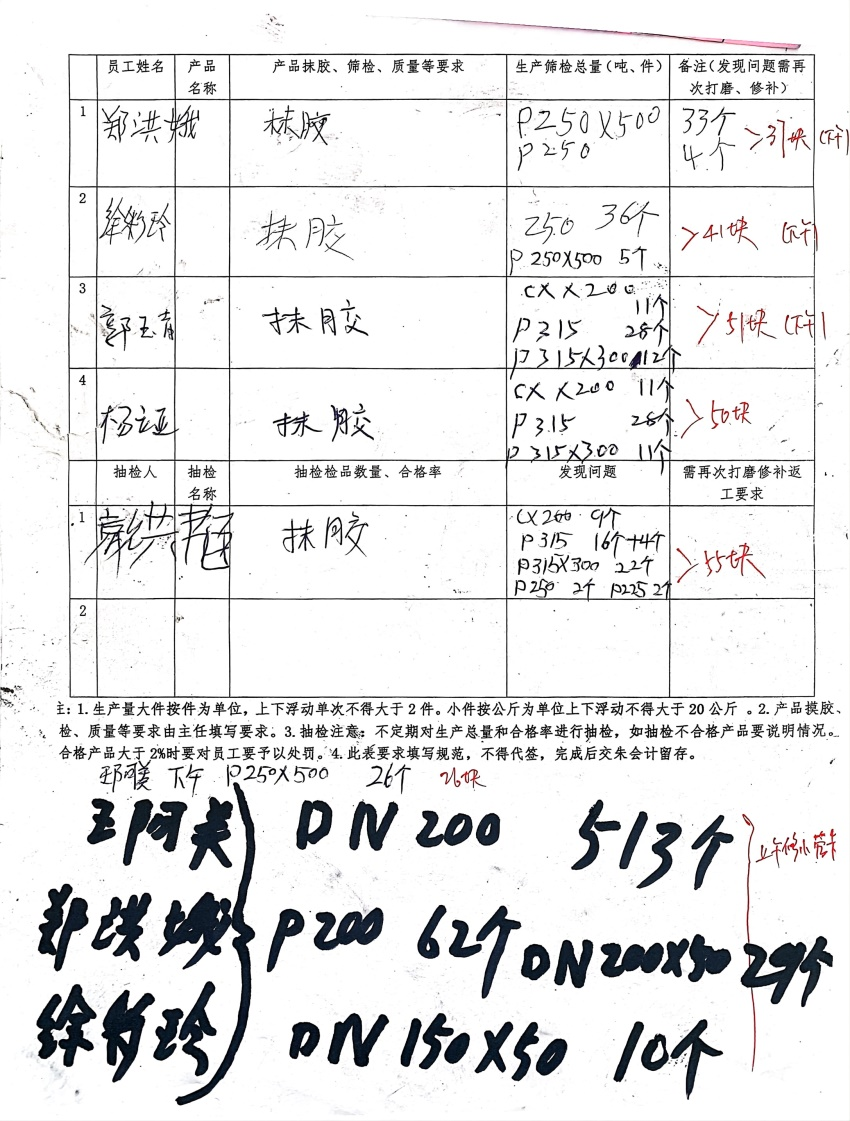 员工姓名 产品名称 产品抹胶、筛检、质量等要求 生产筛检总量（吨、件） 备注（发现问题需再次打磨、修补）
1 郑洪娥 抹胶 P250X500 33个 >37块（下午）
P250 4个
2 徐 玲 抹胶 250 36个 >41块 （下午）
P250X500 5个
3 郭玉青 抹胶 CX X200 11个 >51块（下午）
P315 28个
P315X300 12个
4 杨 亚 抹胶 CX X200 11个 >50块
P315 28个
P315X300 11个
抽检人 抽检名称 抽检检品数量、合格率 发现问题 需再次打磨修补返工要求
1 抹胶 CX200 9个 >55块
P315 16个+4个
P315X300 22个
P250 2个 P225 2个
2
主：1.生产量大件按件为单位，上下浮动单次不得大于2件。小件按公斤为单位上下浮动不得大于20公斤 。2.产品摸胶、
检、质量等要求由主任填写要求。3.抽检注意：不定期对生产总量和合格率进行抽检，如抽检不合格产品要说明情况。
合格产品大于2%时要对员工要予以处罚。4.此表要求填写规范，不得代签，完成后交朱会计留存。
下午 P250X500 26个 26块
王阿美 DN200 513个 上午修小管卡
郑洪娥 P200 62个 DN200X50 29个
徐 玲 DN150X50 10个